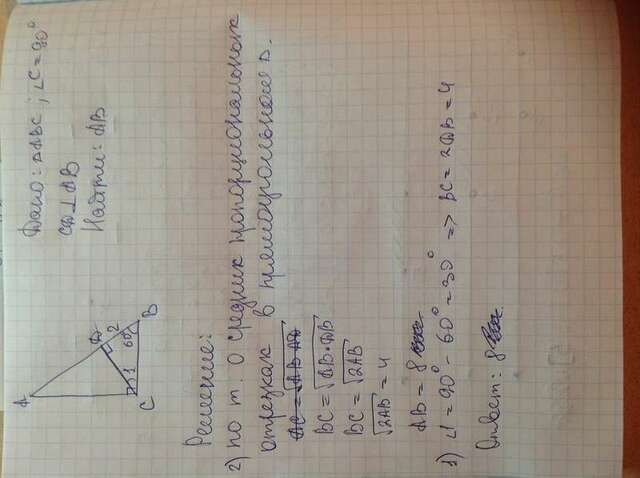 Дано: △ABC; ∠C = 90°
CD⊥AB
Найти: AB
A
D
2
1
60°
C
B
Решение:
2) по т. о средних пропорциональных
отрезках в прямоугольном △.
AC = √AB·AD
BC = √AB·DB
BC = √2AB
√2AB = 4
AB = 8
1) ∠1 = 90° - 60° = 30° => BC = 2DB = 4
Ответ: 8